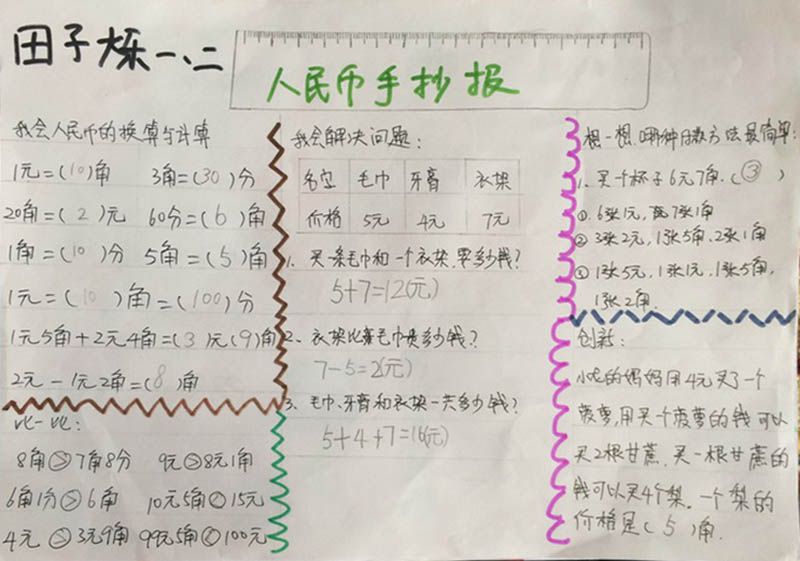 田子烁 一、二
人民币手抄报
我会人民币的换算与计算
1元=(10)角 3角=(30)分
20角=(2)元 60分=(6)角
1角=(10)分 5角=(5)角
1元=(10)角=(100)分
1元5角+2元4角=(3)元(9)角
2元-1元2角=(8)角
比一比:
8角>7角8分 9元>8元1角
6角1分>6角 10元5角<15元
4元>3元9角 99元5角<100元
我会解决问题:
名空 毛巾 牙膏 衣架
价格 5元 4元 7元
1、买一条毛巾和一个衣架,要多少钱?
5+7=12(元)
2、衣架比毛巾贵多少钱?
7-5=2(元)
3、毛巾、牙膏和衣架一共多少钱?
5+4+7=16(元)
想一想,哪种付款方法最简单:
1、买一个杯子6元7角.(③)
①.6张1元,7张1角
②3张2元,1张5角、2张1角
③1张5元,1张1元,1张5角,
1张2角.
创新:
的妈妈用4元买了一个
菠萝,用买一个菠萝的钱可以
买2根甘蔗.买一根甘蔗的
钱可以买4个梨.一个梨的
价格是(5)角.